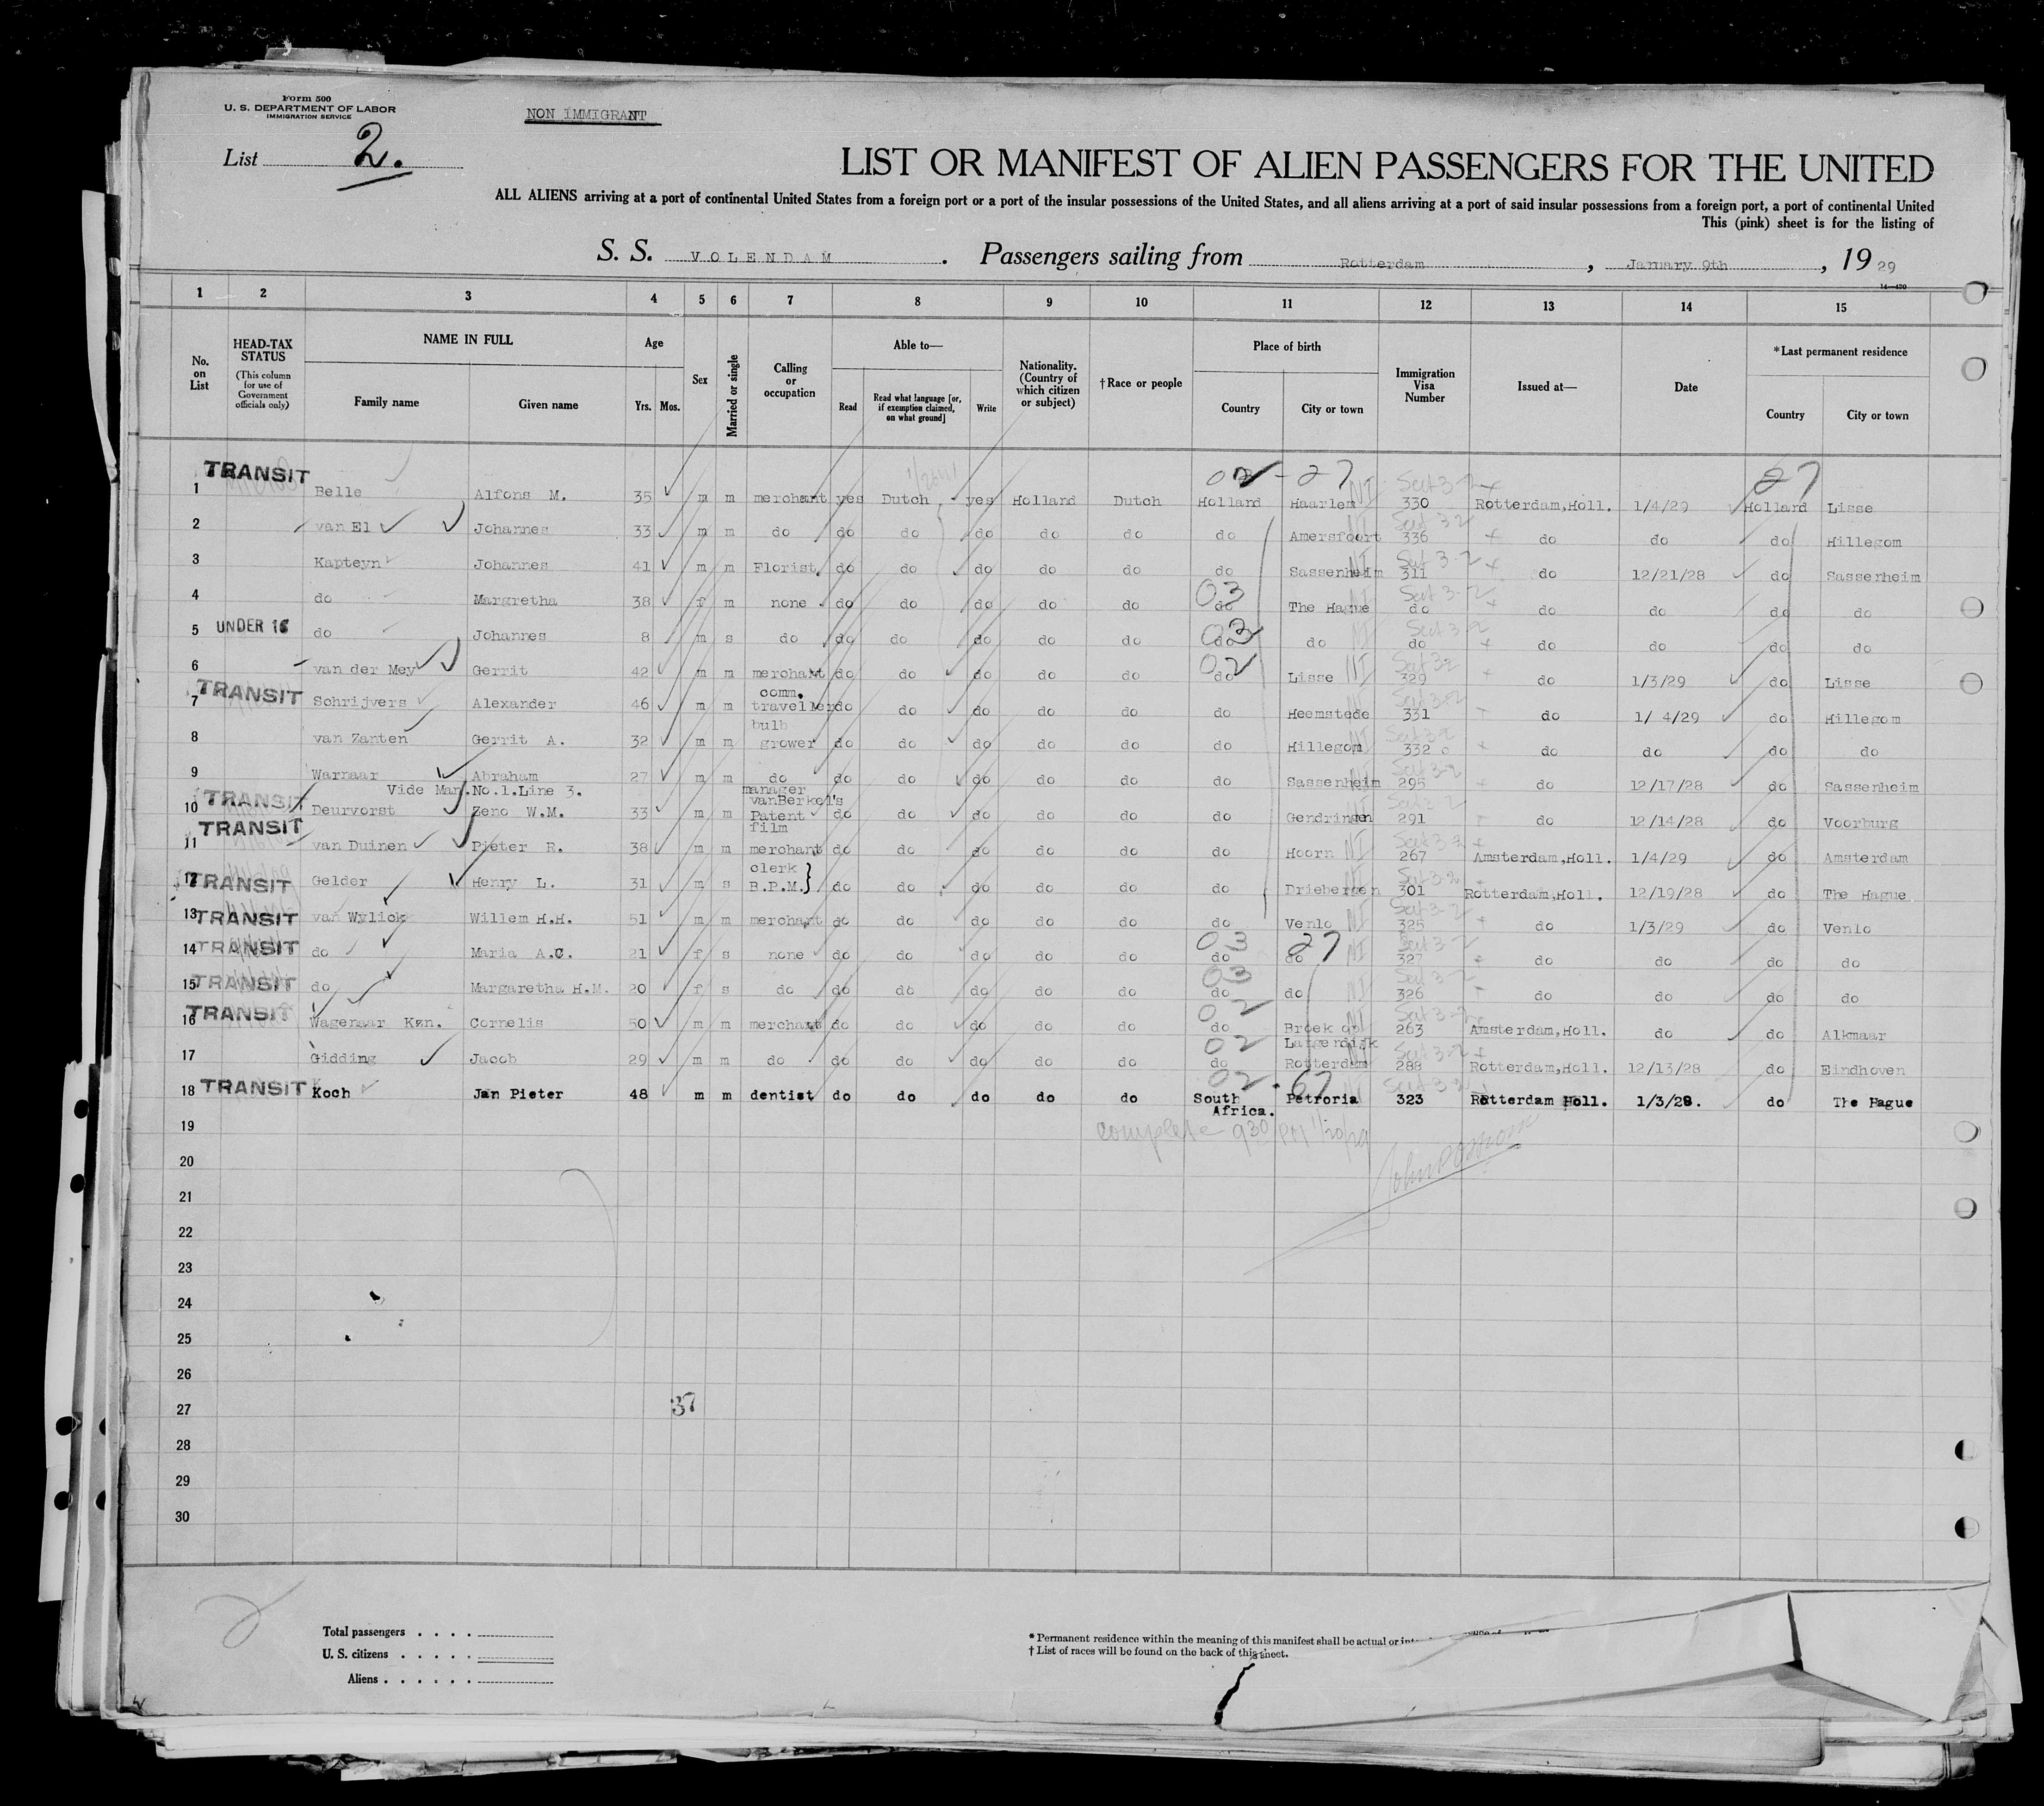 Form 500
U. S. DEPARTMENT OF LABOR
IMMIGRATION SERVICE
NON IMMIGRANT
List 2.
LIST OR MANIFEST OF ALIEN PASSENGERS FOR THE UNITED
ALL ALIENS arriving at a port of continental United States from a foreign port or a port of the insular possessions of the United States, and all aliens arriving at a port of said insular possessions from a foreign port, a port of continental United
This (pink) sheet is for the listing of
S. S. VOLENDAM. Passengers sailing from Rotterdam, January 9th, 19 29
14—420
1 2 3 4 5 6 7 8 9 10 11 12 13 14 15
No. on List HEAD-TAX STATUS (This column for use of Government officials only) NAME IN FULL Family name Given name Age Yrs. Mos. Sex Married or single Calling or occupation Able to— Read Read what language [or, if exemption claimed, on what ground] Write Nationality. (Country of which citizen or subject) †Race or people Place of birth Country City or town Immigration Visa Number Issued at— Date *Last permanent residence Country City or town
02 - 27 27
1 TRANSIT Belle Alfons M. 35 m m merchant yes Dutch yes Holland Dutch Holland Haarlem NI Sect 3-2 330 Rotterdam,Holl. 1/4/29 Holland Lisse
2 van El Johannes 33 m m do do do do do do do Amersfoort NI Sect 3-2 336 do do do Hillegom
3 Kapteyn Johannes 41 m m Florist do do do do do do Sassenheim NI Sect 3-2 311 do 12/21/28 do Sassenheim
4 do Margretha 38 f m none do do do do do 03 do The Hague NI Sect 3-2 do do do do do
5 UNDER 16 do Johannes 8 m s do do do do do do 03 do do NI Sect 3-2 do do do do do
6 van der Mey Gerrit 42 m m merchant do do do do do 02 do Lisse NI Sect 3-2 329 do 1/3/29 do Lisse
7 TRANSIT Schrijvers Alexander 46 m m comm. traveller do do do do do do Heemstede NI Sect 3-2 331 do 1/ 4/29 do Hillegom
8 van Zanten Gerrit A. 32 m m bulb grower do do do do do do Hillegom NI Sect 3-2 332 do do do do
9 Warnaar Abraham 27 m m do do do do do do do Sassenheim Sect 3-2 295 do 12/17/28 do Sassenheim
Vide Man.No.1.Line 3.
10 TRANSIT Deurvorst Zeno W.M. 33 m m manager vanBerkel's Patent do do do do do do Gendringen Sect 3-2 291 do 12/14/28 do Voorburg
11 TRANSIT van Duinen Pieter R. 38 m m film merchant do do do do do do Hoorn NI Sect 3-2 267 Amsterdam,Holl. 1/4/29 do Amsterdam
12 TRANSIT Gelder Henry L. 31 m s clerk B.P.M.} do do do do do do Driebergen Sect 3-2 301 Rotterdam,Holl. 12/19/28 do The Hague
13 TRANSIT van Wylick Willem H.H. 51 m m merchant do do do do do do Venlo NI Sect 3-2 325 do 1/3/29 do Venlo
14 TRANSIT do Maria A.C. 21 f s none do do do do do 03 do 27 do NI Sect 3-2 327 do do do do
15 TRANSIT do Margaretha H.M. 20 f s do do do do do do 03 do do NI Sect 3-2 326 do do do do
16 TRANSIT Wagenaar Kzn. Cornelis 50 m m merchant do do do do do 02 do Broek op Langendijk NI Sect 3-2 263 Amsterdam,Holl. do do Alkmaar
17 Gidding Jacob 29 m m do do do do do do 02 do Rotterdam NI Sect 3-2 288 Rotterdam,Holl. 12/13/28 do Eindhoven
18 TRANSIT Koch Jan Pieter 48 m m dentist do do do do do 02 - 67 South Africa. Petroria NI Sect 3-2 323 Rotterdam Holl. 1/3/29. do The Hague
19 complete 930 PM 1/20/29
20
21
22
23
24
25
26
27 37
28
29
30
2
Total passengers
U. S. citizens
Aliens
* Permanent residence within the meaning of this manifest shall be actual or
† List of races will be found on the back of this sheet.